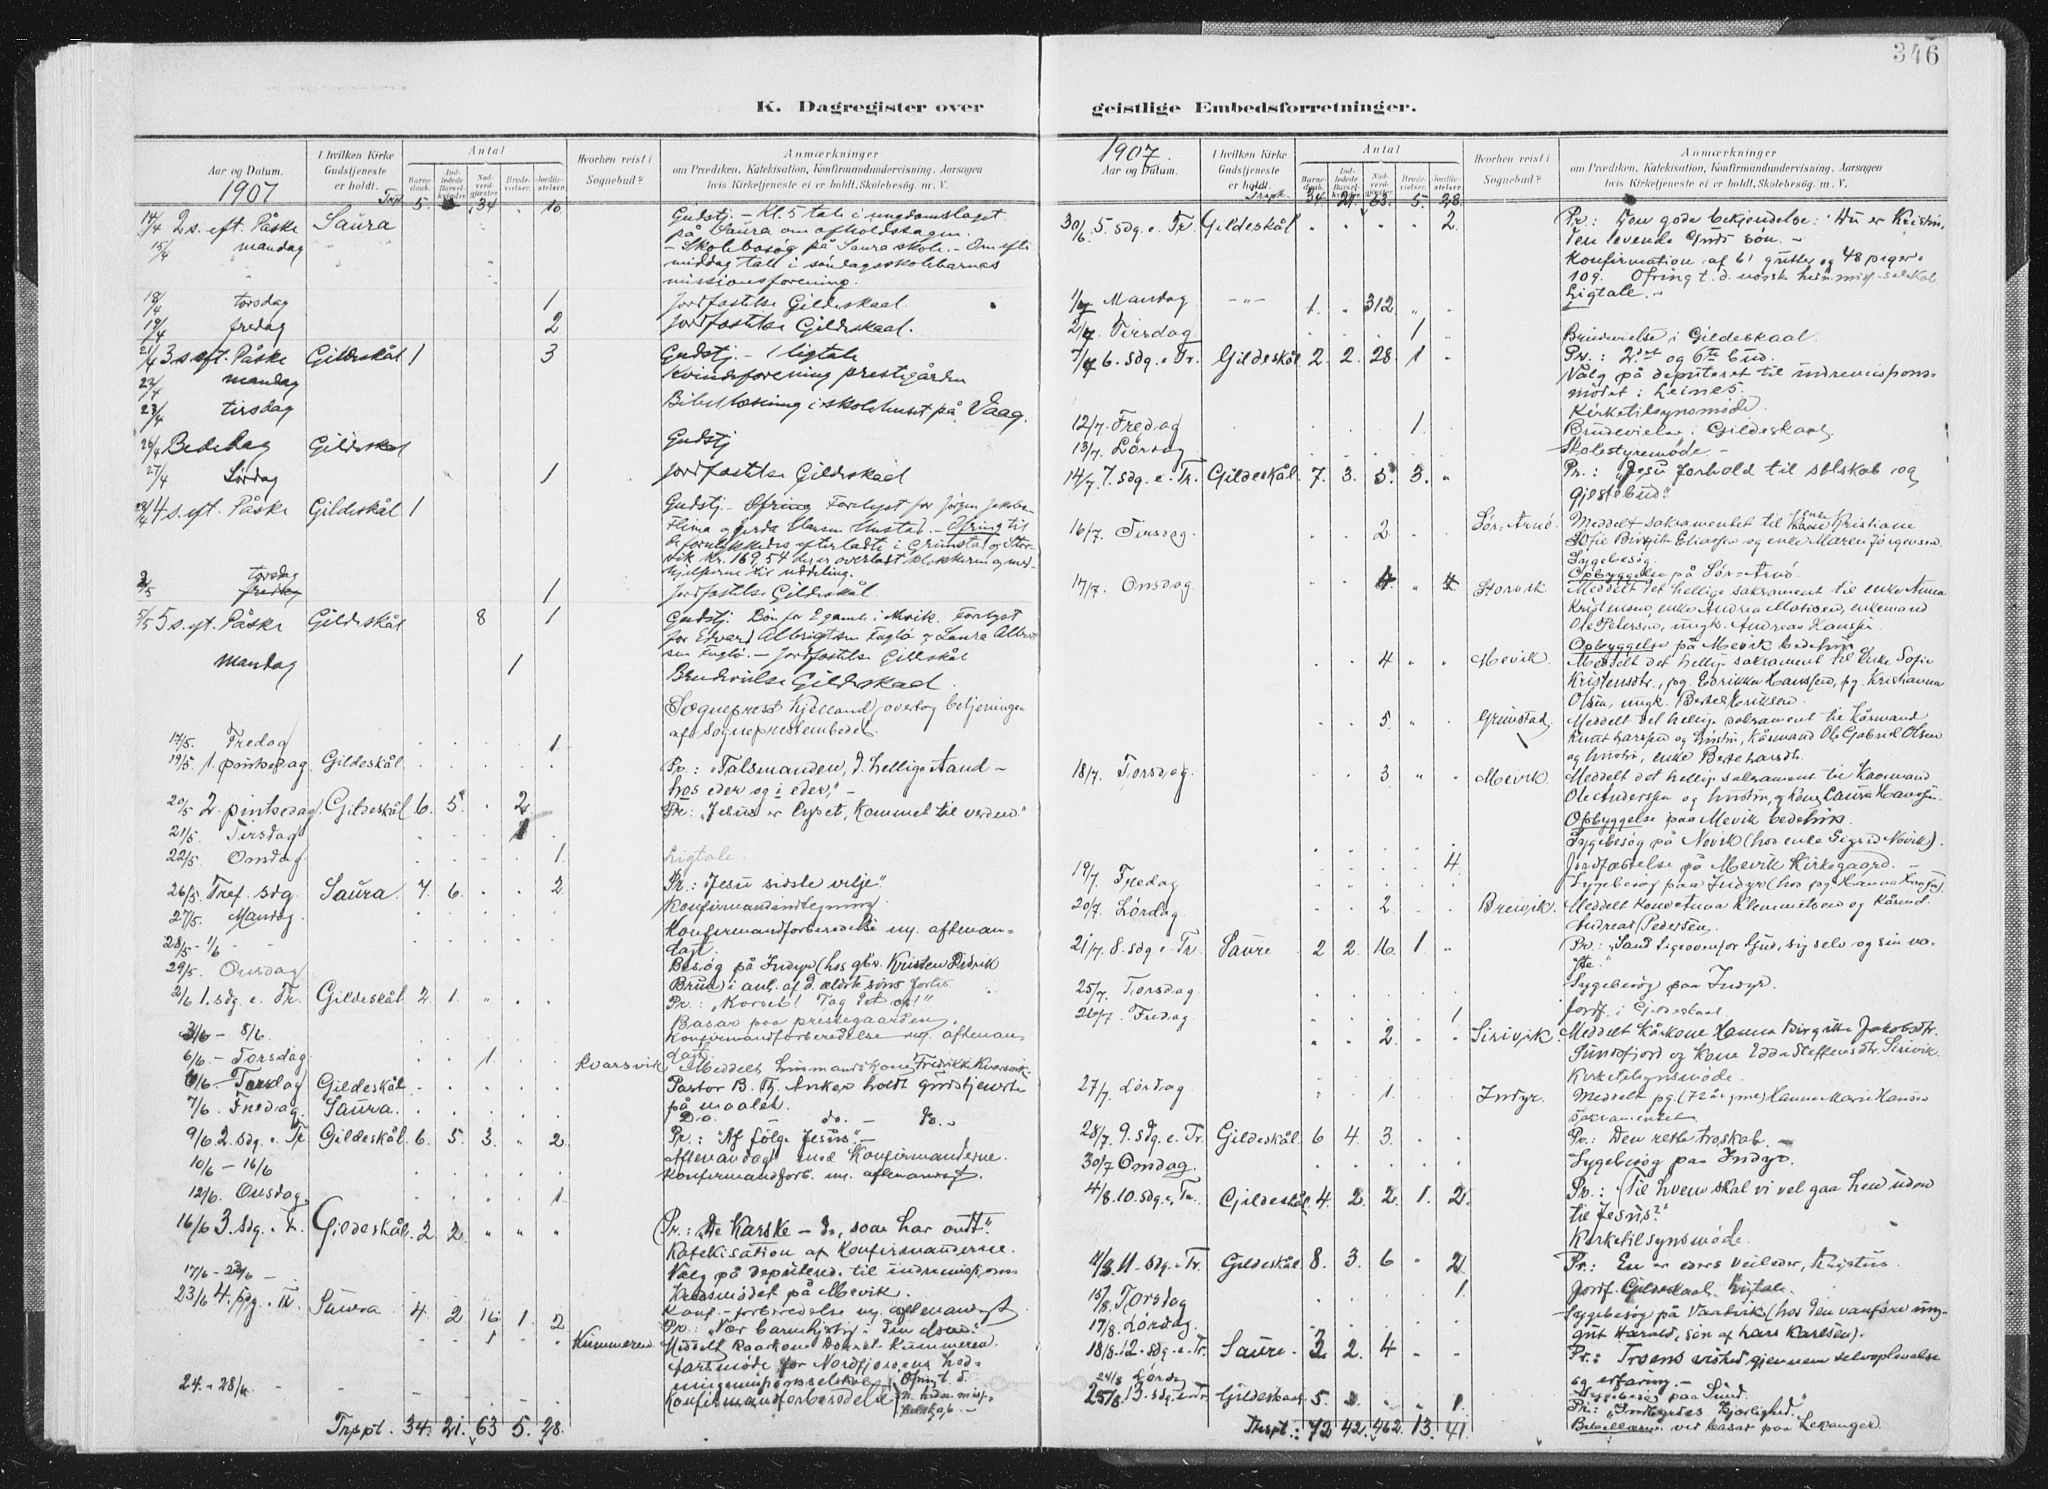 346
K. Dagregister over
geistlige Embedsforretninger.
Aar og Datum.
1907
I hvilken Kirke Gudstjeneste er holdt.
Antal
Barnedaab.
Indledede Barselkvinder.
Nadverdgjæster.
Brudevielser.
Jordfæstelser.
Hvorhen reist i Sognebud?
Anmærkninger
om Prædiken, Katekisation, Konfirmandundervisning, Aarsagen
hvis Kirketjeneste ei er holdt, Skolebesøg, m. V.
Trsp. 5. 34 10
14/4 2 s. eft. Påske Saura Gudstj. – Kl. 5 tale i ungdomslaget
på Saura om afholdssagen.
15/4 mandag – Skolebesøg på Saura skole. – Om efter
middag tale i søndagsskolebarnas
missionsforening.
18/4 torsdag 1 Jordfæstelse Gildeskaal.
19/4 fredag 2 Jordfæstelse Gildeskaal.
21/4 3. s. eft. Påske Gildeskål 1 3 Gudstj. – 1 ligtale
22/4 mandag Kvindeforening prestegården
23/4 tirsdag Bibellæsning i skolehuset på Vaag.
26/4 Bededag Gildeskål Gudstj
27/4 Lørdag 1 Jordfæstelse Gildeskål
28/4 4 s. eft. Påske Gildeskål 1 Gudstj. Ofring Forelyst for Jørgen
og Gerda – Ofring til
de forulykkedes efterladte i Grimstad og Stor-
vik kr. 169,54 der er overladt klokkeren og med-
hjelperne til uddeling.
2/5 torsdag 1 Jordfæstelse Gildeskål.
5/5 5 s. eft. Påske Gildeskål 8 1 Gudstj. Bøn for 2 gamle i Mevik. Forelyst
for Edvard Albrigtsen Fuglø og Laura
Fuglø. – Jordfæstelse Gildeskål
mandag 1 Brudevielse Gildeskaal.
Sogneprest Kjelland overtog betjeningen
af Sogneprestembedet.
17/5. Fredag 1.
19/5. 1. pintsedag Gildeskål. Pr.: "Talsmanden, d. hellige Aand –
hos eder og i eder," –
20/5 2. pintsedag Gildeskål 6. 5. 2 Pr: "Jesus er lyset, kommet til verden"
21/5. Tirsdag 1
22/5. Onsdag 1. Ligtale.
26/5. Tref. sdg. Saura. 7. 6. 2 Pr.: "Jesu sidste vilje".
27/5. Mandag Konfirmandindtegning
28/5 – 1/6 Konfirmandforberedelse m. aftenan-
dagt.
29/5. Onsdag Besøg på Indyr (hos gbr. Kristen Didrik
Brun) i anl. af d. ældste søns forlis.
2/6 1. sdg. e. Tr. Gildeskål 2. 1. Pr.: "Korset! Tag det op!"
Basar paa prestegaarden.
3/6 – 8/6. Konfirmandforberedelse m. aftenan-
dagt.
6/6. – Torsdag 1. Kvarsvik Meddelt Fredrikke Kvarsvik.
6/6 – Torsdag Gildeskål Pastor B. Th. Anker holdt gudstjeneste
på maalet.
7/6. Fredag Saura. Do. – do. – do.
9/6. 2. sdg. e. Tr Gildeskål 6. 5. 3. " 2 Pr.: "At følge Jesus". –
Aftenandagt med Konfirmanderne.
10/6 – 16/6 Konfirmandforb. m. aftenandagt.
12/6. Onsdag. 1.
16/6 3. sdg. e. Tr. Gildeskål. 2. 2. " " " Pr.: "De Karske – de, som har ondt".
Katekisation af Konfirmanderne.
Valg på deputered. til indremissions-
kredsmødet på Mevik.
17/6 – 22/6 – Konf. – forberedelse m. aftenandagt
23/6 4. sdg. e. Tr. Saura 4. 2 16 1. 2 Pr.: "Vær barmhjertig".
1 Kummeren Meddelt Kummeren.
for Nordfjordens hed-
ningemissionsselskab. Ofring t. d.
24. – 28/6 Konfirmandforberedelse
Trspt. 34. 21. 63 5. 28.
1907.
Aar og Datum.
I hvilken Kirke Gudstjeneste er holdt.
Antal
Barnedaab.
Indledede Barselkvinder.
Nadverdgjæster.
Brudevielser.
Jordfæstelser.
Hvorhen reist i Sognebud?
Anmærkninger
om Prædiken, Katekisation, Konfirmandundervisning, Aarsagen
hvis Kirketjeneste ei er holdt, Skolebesøg, m. V.
Trspt. 34. 21. 63. 5. 28.
30/6. 5. sdg. e. Tr. Gildeskål 2. Pr.: Den gode bekjendelse: Du er Kristus,
den levende Guds søn. –
Konfirmation af 61 gutter og 48 piger =
109. Ofring t. d. norske
Ligtale. –
1/7 Mandag –"– 1. 312
2/7. Tirsdag 1 Brudevielse i Gildeskaal.
7/7 6. sdg. e. Tr. Gildeskål 2 2. 28. 1 Pr.: 2det og 6te bud.
Valg på deputeret til indremissions-
mødet i Leines.
Kirketilsynsmøde.
12/7. Fredag 1. Brudevielse i Gildeskaal,
13/7. Lørdag Skolestyremøde. –
14/7. 7. sdg. e. Tr. Gildeskål. 7. 3. 5. 3. " Pr.: "Jesu forhold til selskab og
gjestebud".
16/7. Tirsdag. 2. Sør-Arnö. Meddelt sakramentet til Kristiane
Sofie Eliasen og enke Maren Jørgensen.
Sygebesøg.
Opbyggelse på Sør-Arnö.
17/7. Onsdag 4. Storvik Meddelt det hellige sakrament til enke Anna
Kristensen, enke Andrea Matisen, enkemand
Ole Petersen, ungk. Andreas Hansen.
Opbyggelse på Mevik bedehus
4 Mevik. Meddelt det hellige sakrament til Enke Sofie
Kristensdtr., pg. Edrikke Hansen, pg. Kristianna
Olsen, ungk. Bertel Eriksen.
5 Grimstad, Meddelt det hellige sakrament til Kårmand
Knut Larsen og hustru, Kårmand Ole Gabriel Olsen
og hustru, enke Berte Larsdtr.
18/7. Torsdag. 3 Mevik. Meddelt det hellige sakrament til Kaarmand
Ole Andersen og hustru, og Kone Laura Hansen.
Opbyggelse paa Mevik bedehus.
Sygebesøg på Növik (hos enke Sigrid Növik).
4. Jordfæstelse på Mevik Kirkegaard. –
19/7. Fredag Sygebesøg paa Indyr (hos pg. Hanna Hansen).
20/7. Lørdag. 2 Breivik. Meddelt Kone Anna Klemmetsen og Kårmd.
Andreas Pedersen.
21/7. 8. sdg. e. Tr. Saura 2 2. 16. 1 Pr.: "Sand ligeoverfor Gud, sig selv og sin næ-
ste."
25/7. Torsdag. Sygebesøg paa Indyr.
26/7. Fredag. 1 Jordf. i Gildeskaal
2 Sirivik. Meddelt Kårkone Hanna Birgitte Jakobsdtr.
Sundsfjord og kone Edda Steffensdtr. Sirivik.
Kirketilsynsmøde.
27/7. Lørdag 1. Indyr. Meddelt pg. (72 år gml) Hanna Marie Hansen
Sakramentet
28/7. 9. sdg. e. Tr. Gildeskål. 6 4. 3. Pr.: Den rette troskab. –
30/7 Onsdag. Sygebesøg paa Indyr.
4/8. 10. sdg. e. Tr. Gildeskål. 4 2. 2. 1. 2. Pr.: (Til hvem skal vi vel gaa hen uden
til Jesus?"
Kirketilsynsmøde.
11/8. 11. sdg. e. Tr. Gildeskål 8. 3. 6 2. Pr.: En er eders veileder, Kristus.
15/8. Torsdag 1. Jordf. Gildeskaal. Ligtale.
17/8. Lørdag. Sygebesøg på Vaatvik (hos den vanföre ung-
gut Harald, søn af Lars Karlsen).
18/8. 12. sdg. e. Tr. Saura. 3. 2. 4 – – Pr.: Troens vished gjennem selvoplevelse
og erfaring. –
24/8 Lørdag Sygebesøg paa Sund.
25/8. 13. sdg. e. Tr. Gildeskaal 5. 1. Pr.: "Indbyrdes Kjærlighed".
Bibellæsn. ved basar paa Levanger.
Trspt.: 72 42. 462. 13. 41.